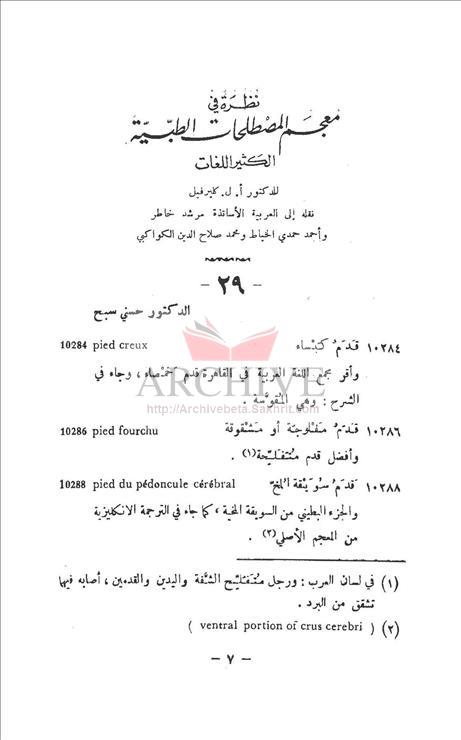 نظرة في
معجم المصطلحات الطبية
الكثير اللغات
للدكتور أ. ل. كليرفيل
نقله إلى العربية الأساتذة مرشد خاطر
وأحمد حمدي الخياط ومحمد صلاح الدين الكواكبي
- ٢٩ -
الدكتور حسني سبح
١٠٢٨٤ قدم كبساء 10284 pied creux
وأقر مجمع اللغة العربية في القاهرة قدم خمصاء ، وجاء في
الشرح : وهي المقوسة .
ARCHIVE
http://Archivebeta.Sakhrit.com
١٠٢٨٦ قدم مفلوجة أو مشقوقة 10286 pied fourchu
وأفضل قدم متفلحة (١) .
١٠٢٨٨ قدم سويقة المخ 10288 pied du pédoncule cérébral
والجزء البطيني من السويقة المخية ، كما جاء في الترجمة الانكليزية
من المعجم الأصلي (٢) .
(١) في لسان العرب : ورجل متفلح الشفة واليدين والقدمين ، أصابه فيها
تشقق من البرد .
(٢) ( ventral portion of crus cerebri )
- ٧ -